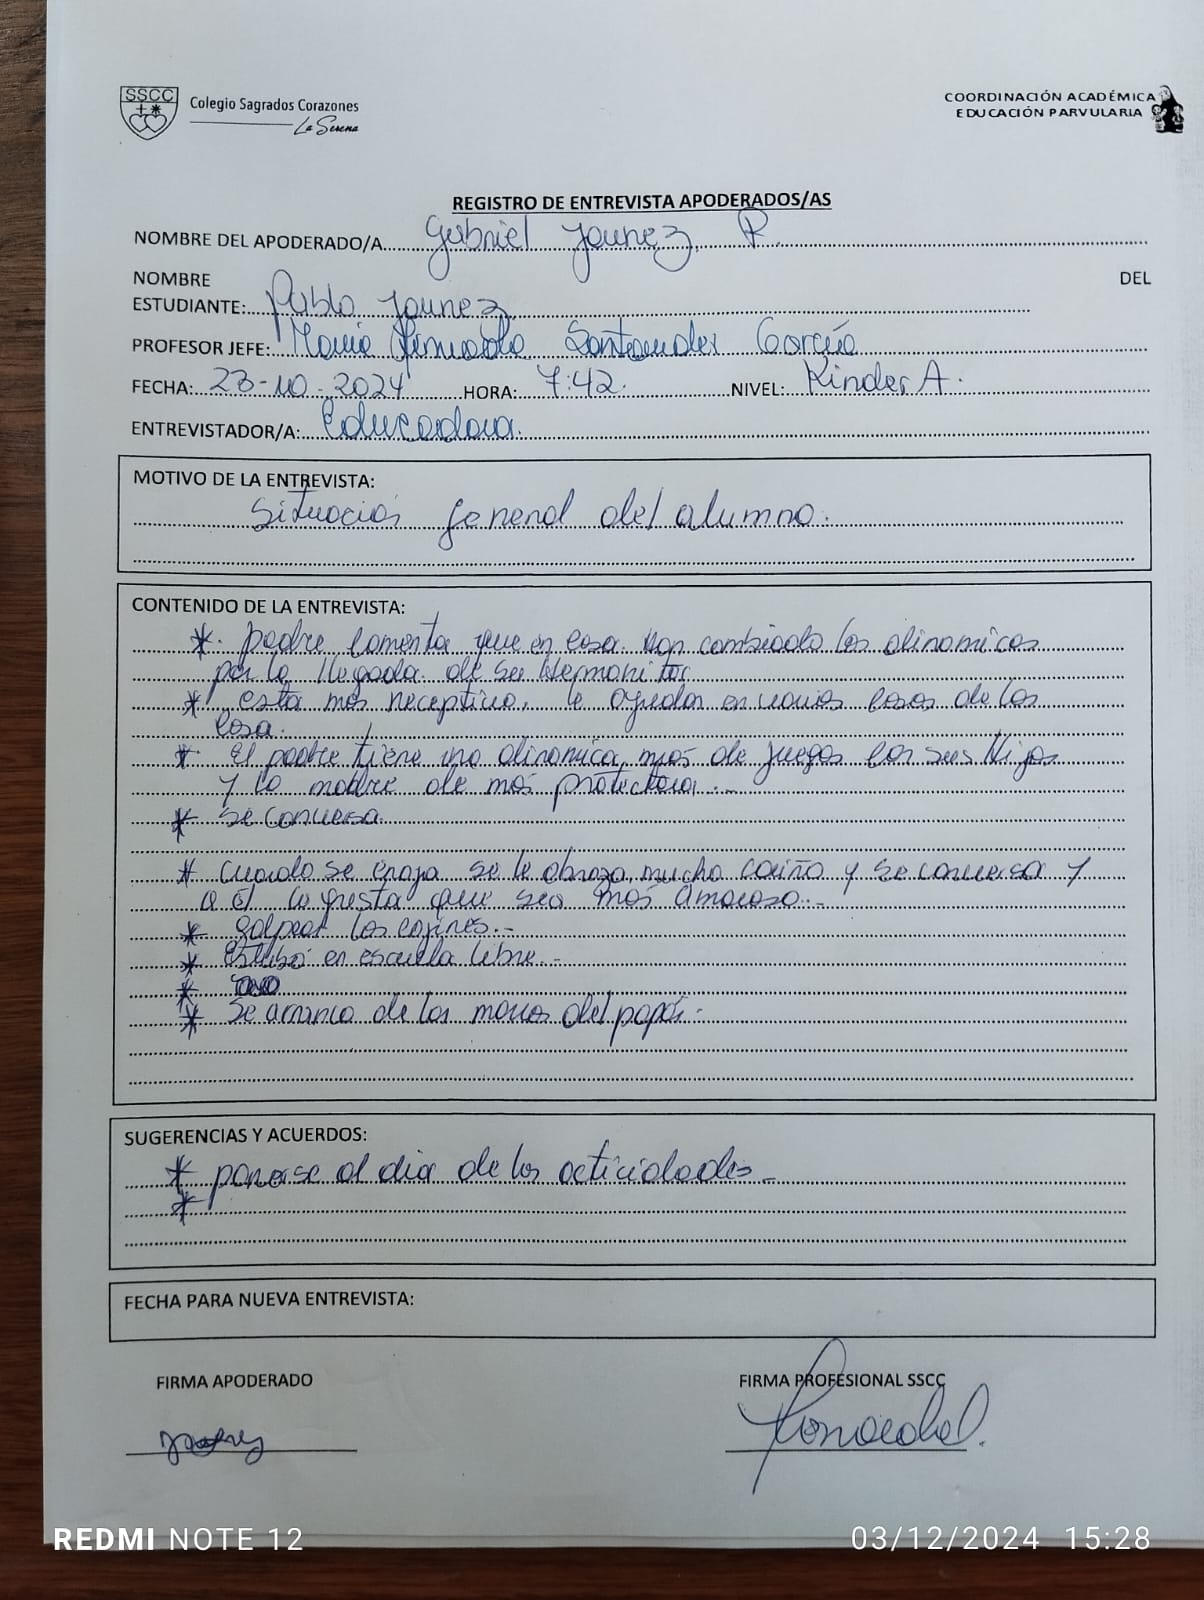 SSCC
Colegio Sagrados Corazones
La Serena
COORDINACIÓN ACADÉMICA
EDUCACIÓN PARVULARIA
REGISTRO DE ENTREVISTA APODERADOS/AS
NOMBRE DEL APODERADO/A Gabriel Younez R.
NOMBRE DEL
ESTUDIANTE: Pablo Younez
PROFESOR JEFE: Santander García
FECHA: 23-10-2024 HORA: 7:42. NIVEL: Kinder A.
ENTREVISTADOR/A: Educadora.
MOTIVO DE LA ENTREVISTA:
Situación general del alumno.
CONTENIDO DE LA ENTREVISTA:
* padre comenta que en casa han cambiado las dinamicas
por la llegada de su Hermanito
* esta más receptivo, le ayudar en varias cosas de las
casa.
* El padre tiene una dinamica más de juegos con sus Hijos
y la madre de más protectora.-
* se conversa.
* Cuando se enoja se le abraza mucho cariño y se conversa y
a él le gusta que sea más amoroso.-
* golpear los cojines.-
* Estubo en escuela libre.-
*
* Se arranca de las manos del papá.-
SUGERENCIAS Y ACUERDOS:
* ponerse al día de las actividades.-
*
FECHA PARA NUEVA ENTREVISTA:
FIRMA APODERADO
FIRMA PROFESIONAL SSCC
REDMI NOTE 12
03/12/2024 15:28